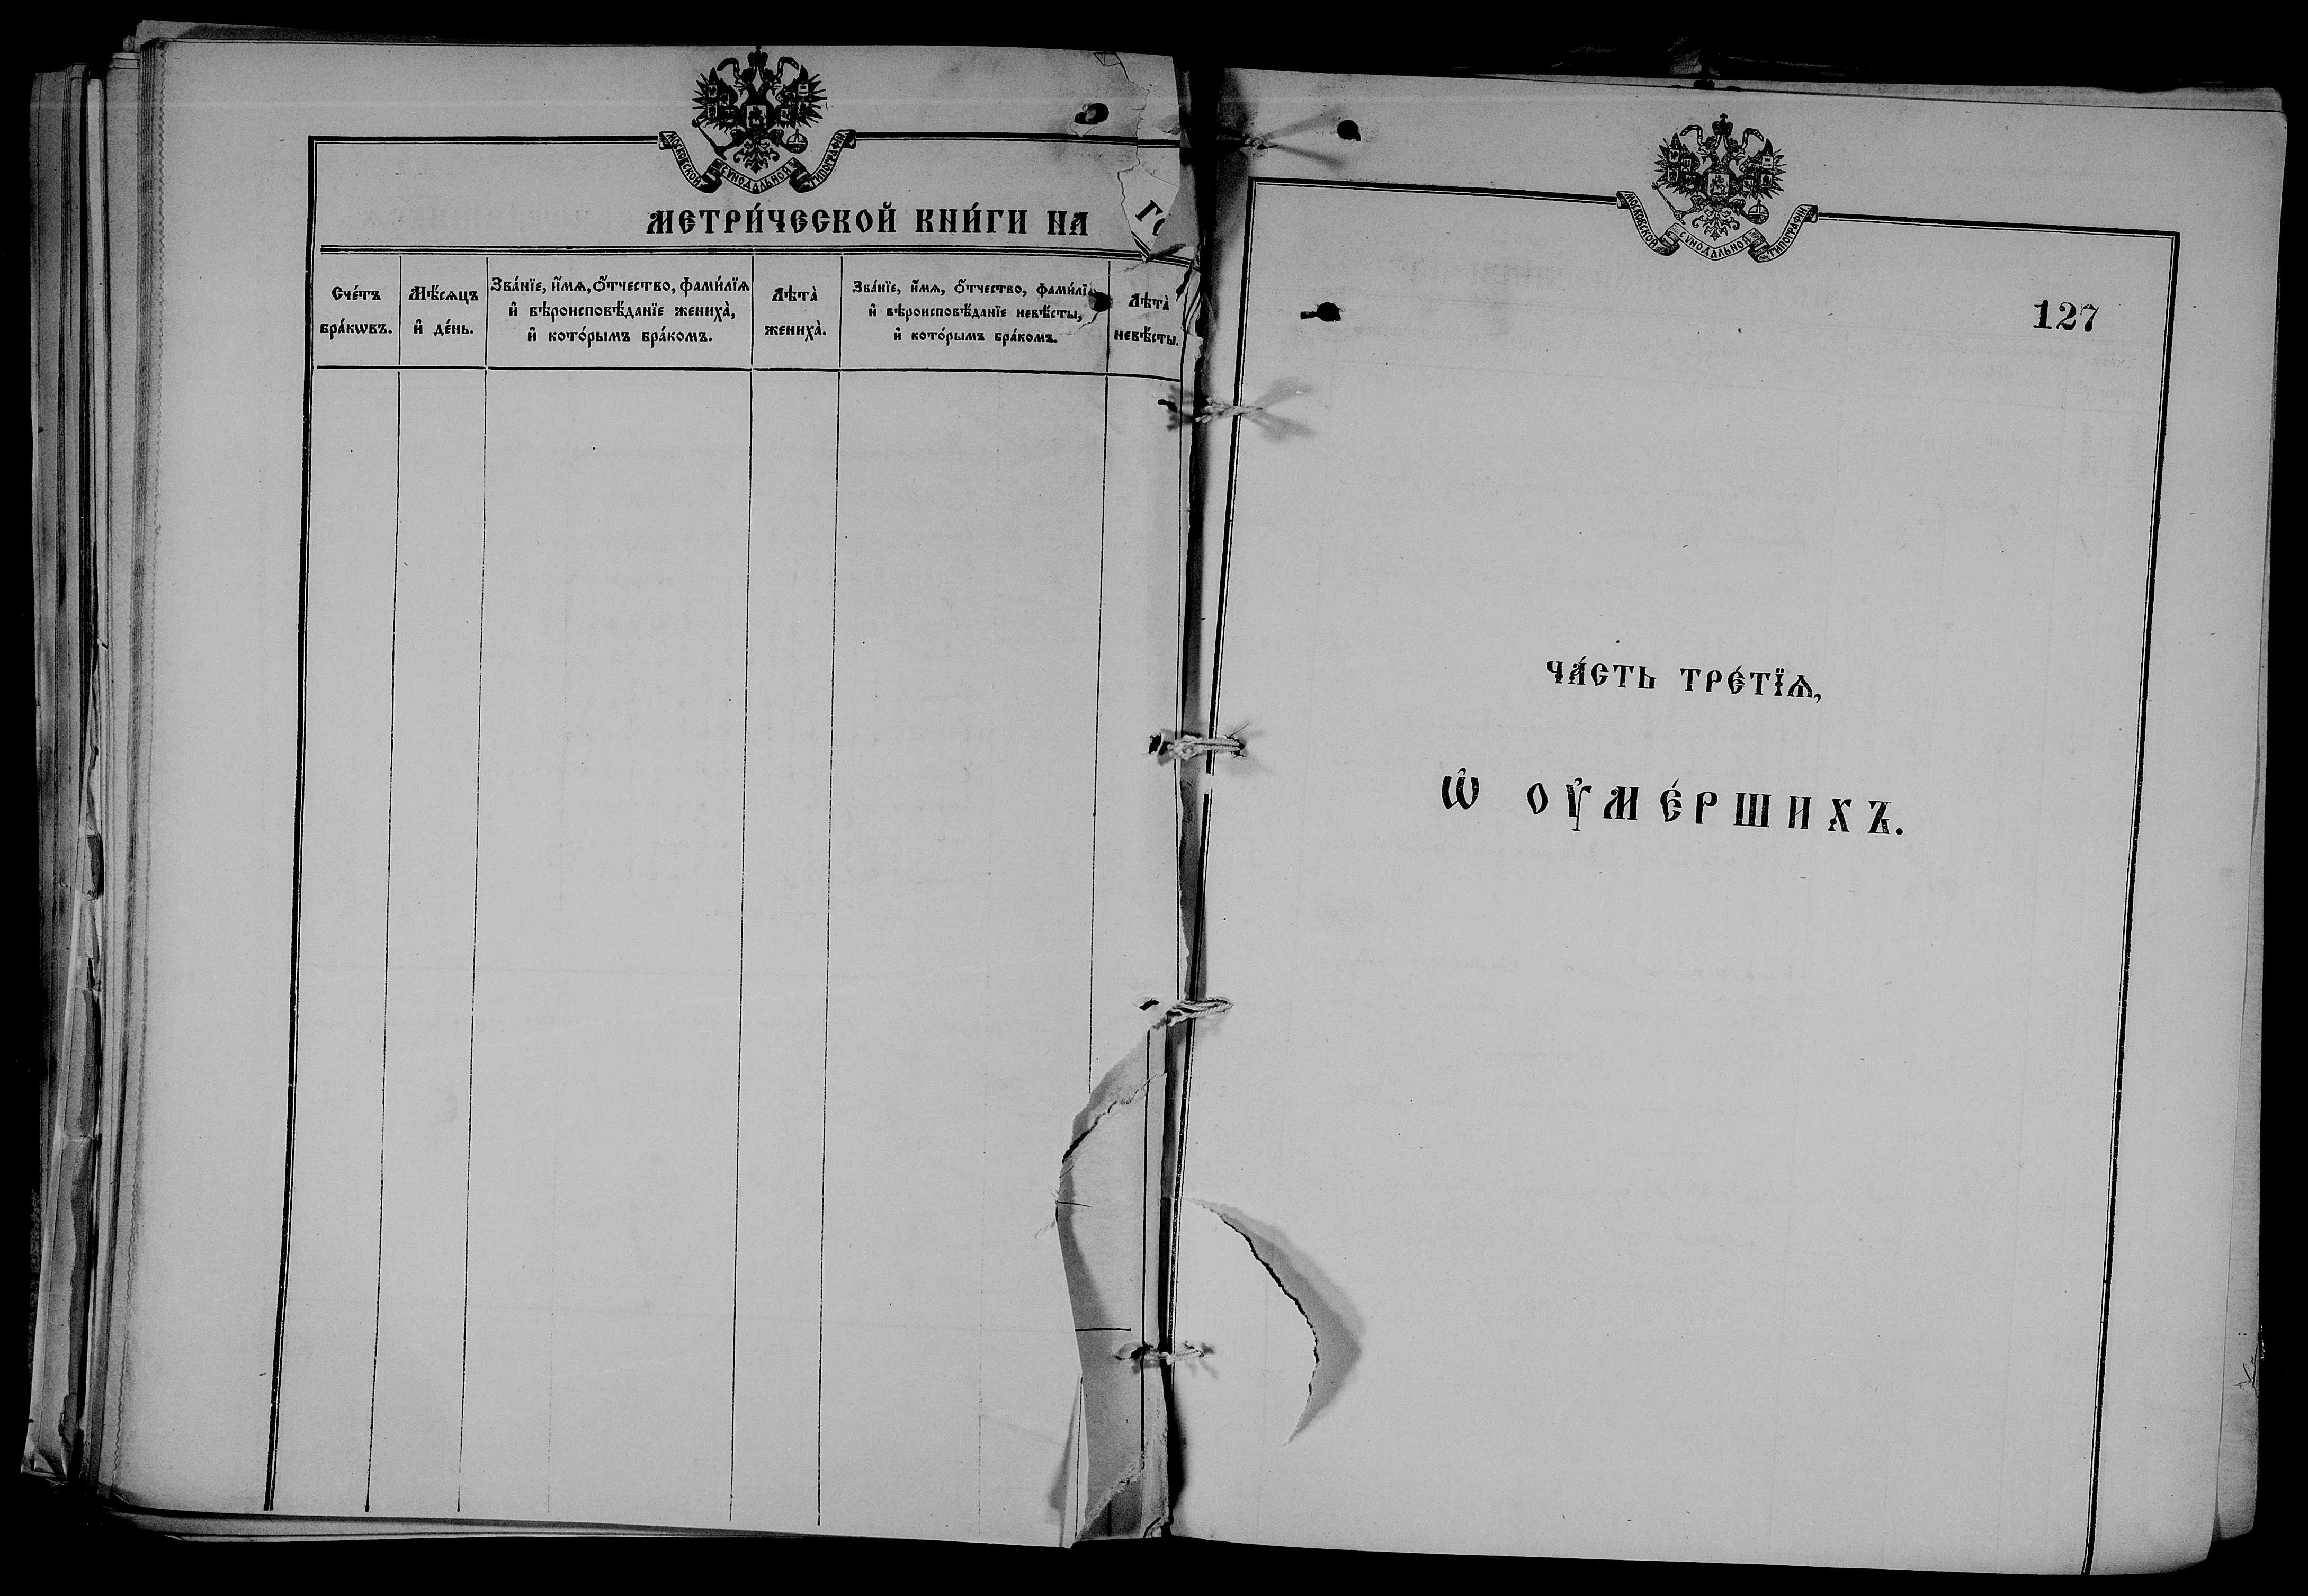 МОСКОВСКОЙ СѴНОДАЛЬНОЙ ТИПОГРАФІИ
МЕТРИ́ЧЕСКОЙ КНИ́ГИ НА
Сче́тъ бра́кѡвъ.
Мѣ́сѧцъ и҆ де́нь.
Зва́нїе, и҆́мѧ, ѻ҆́тчество, фами́лїѧ
и҆ вѣроисповѣ́данїе жениха̀,
и҆ кото́рымъ бра́комъ.
Лѣта̀ жениха̀.
Зва́нїе, и҆́мѧ, ѻ҆́тчество, фами́лїѧ
и҆ вѣроисповѣ́данїе невѣ́сты,
и҆ кото́рымъ бра́комъ.
Лѣта̀ невѣ́сты.
МОСКОВСКОЙ СѴНОДАЛЬНОЙ ТИПОГРАФІИ
127
ЧА́СТЬ ТРЕ́ТЇѦ,
Ѡ҆ ОУ҆МЕ́РШИХЪ.